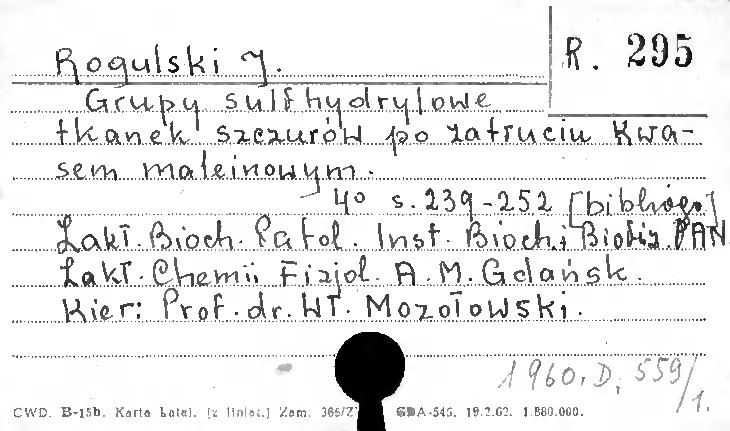 Rogulski J.
R. 295
Grupy sulfhydrylowe
tkanek szczurów po zatruciu kwa-
sem maleinowym.
4° s. 239-252 [bibliogr.]
Zakł. Bioch. Patol. Inst. Bioch. i Biofiz. PAN
Zakł. Chemii Fizjol. A. M. Gdańsk.
Kier: Prof. dr. Wł. Mozołowski.
1960. D. 559/1.
CWD. B-15b. Karta katal. (z liniat.) Zam. 366/Z GDA-545. 19.2.62. 1.880.000.